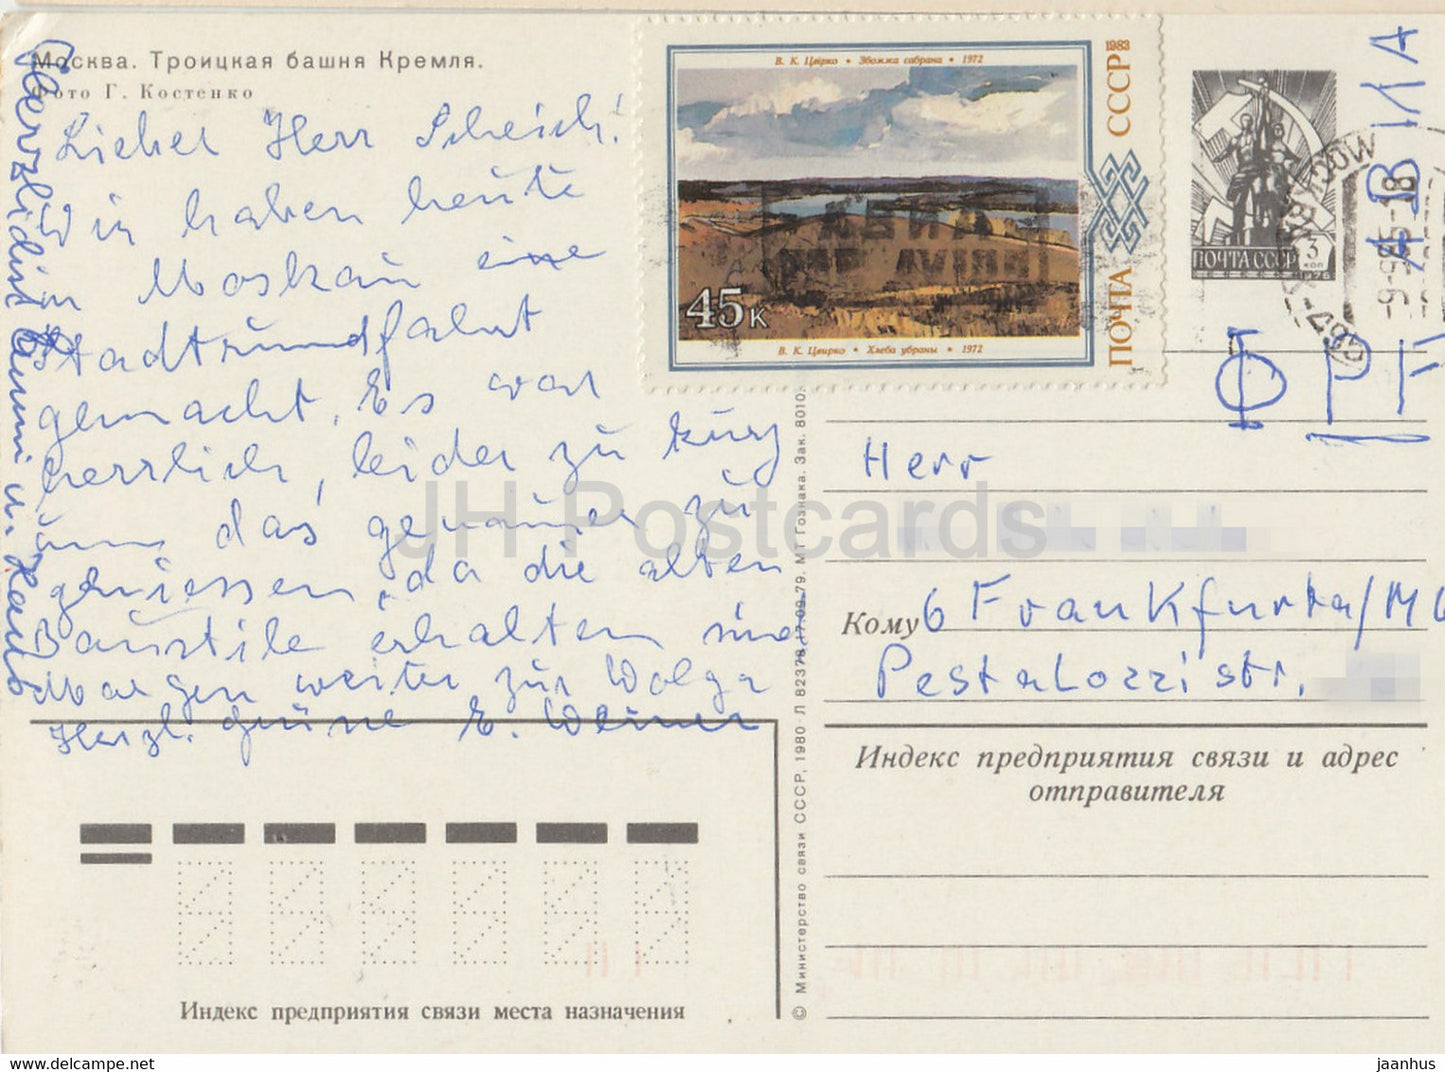 Москва. Троицкая башня Кремля.
Фото Г. Костенко
Lieber Herr Scheich!
Wir haben heute
in Moskau eine
Stadtrundfahrt
gemacht. Es war
herrlich, leider zu kurz
um das genauer zu
geniessen, da die alten
Baustile erhalten sind
Morgen weiter zur Wolga
Herzl. Grüße E.
В. К. Цвірко • Збожжа сабрана • 1972
45к
В. К. Цвирко • Хлеба убраны • 1972
1983
ПОЧТА СССР
АВИА
PAR AVION
ПОЧТА СССР
3
коп
1976
MOSCOW
АВИА
ФРГ
Herr
Кому 6 Frankfurta/M
Pestalozzistr.
Индекс предприятия связи и адрес
отправителя
Индекс предприятия связи места назначения
© Министерство связи СССР, 1980 Л 82378 17.09.79. МТ Гознака. Зак. 8010.
JH Postcards
https://www.delcampe.net
jaanhus